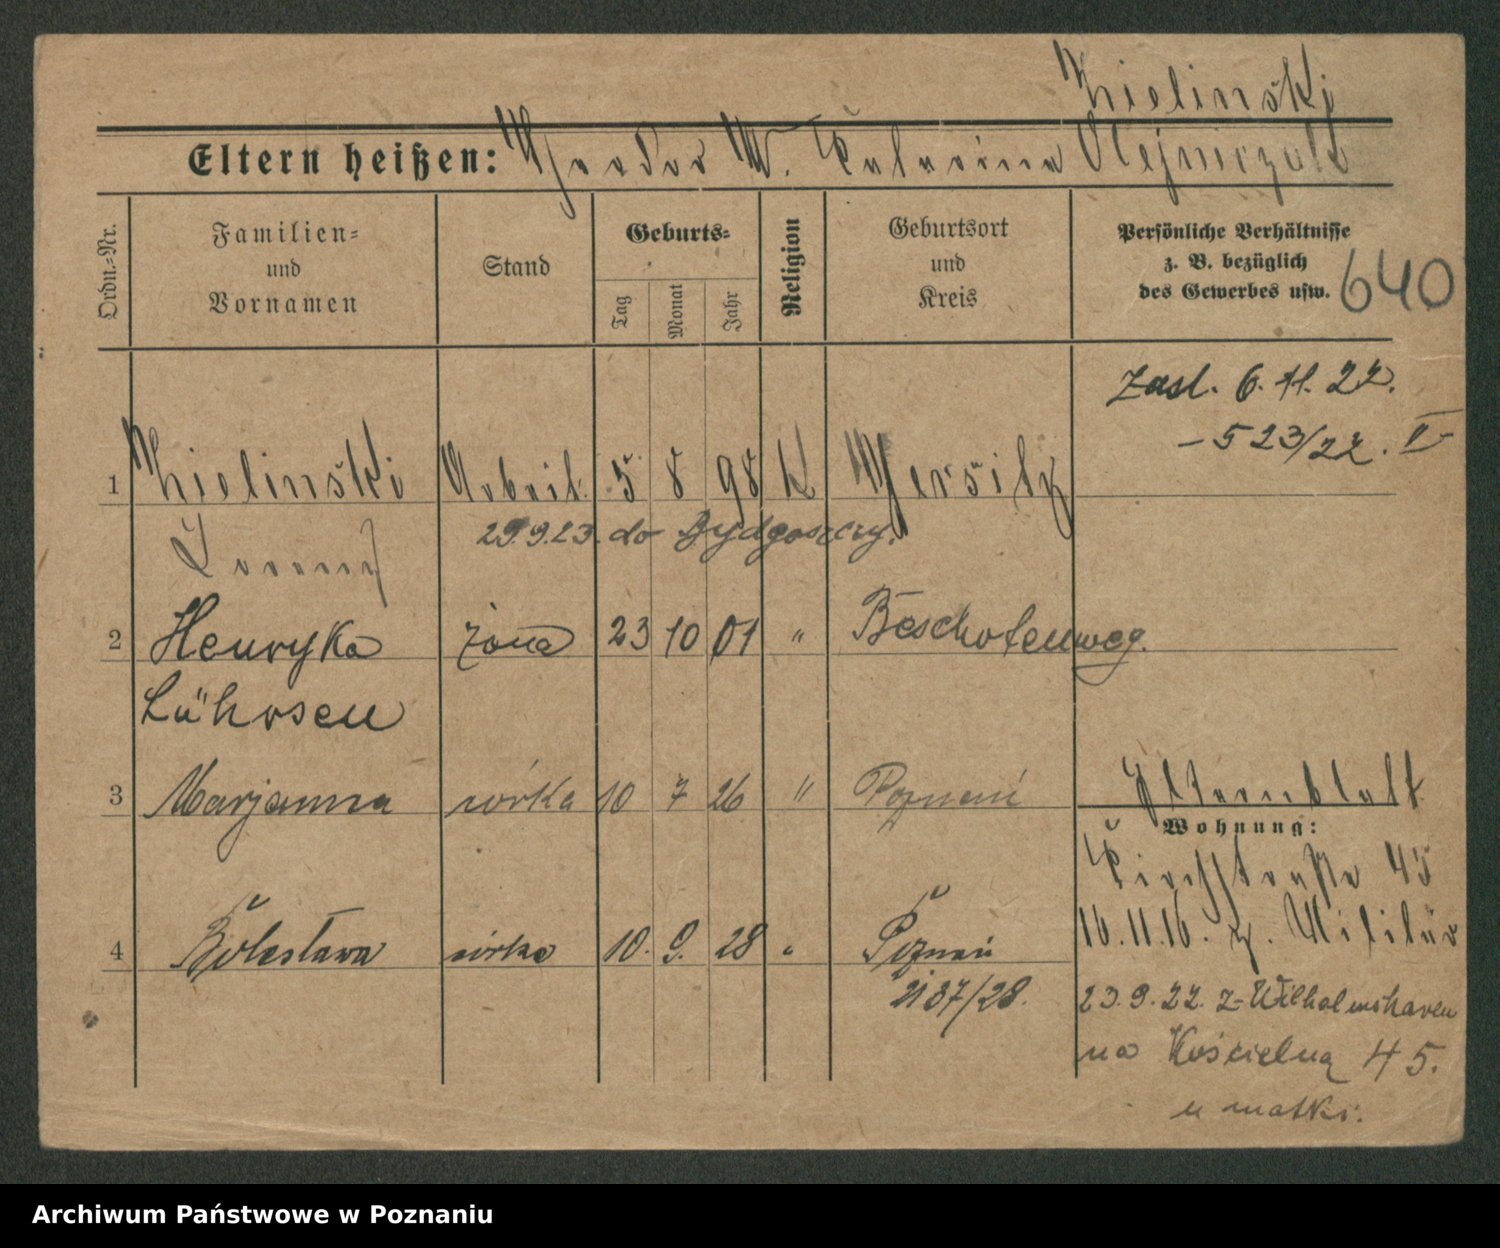 Zielinski
Eltern heißen: Theodor u. Katarina Olejniczak
Ordn.=Nr.
Familien= und Vornamen
Stand
Geburts=
Tag
Monat
Jahr
Religion
Geburtsort und Kreis
Persönliche Verhältnisse
z. B. bezüglich
des Gewerbes usw.
640
Zasl. 6. 11. 22.
– 523/22. V
1 Zielinski Arbeit. 5 8 98 K Jersitz
29.9.23. do Bydgoszczy.
Lorenz
2 Henryka żona 23 10 01 " Beschotenweg.
Lührsen
3 Marjanna córka 10 7 26 " Poznań
Elternblatt
Wohnung:
Kirchstraße 45
16.11.16. z. Militär
4 Bolesława córka 10. 9. 28 " Poznań
2137/28.
23.9.22. z Wilhelmshaven
na Kościelną 45.
u matki.
Archiwum Państwowe w Poznaniu